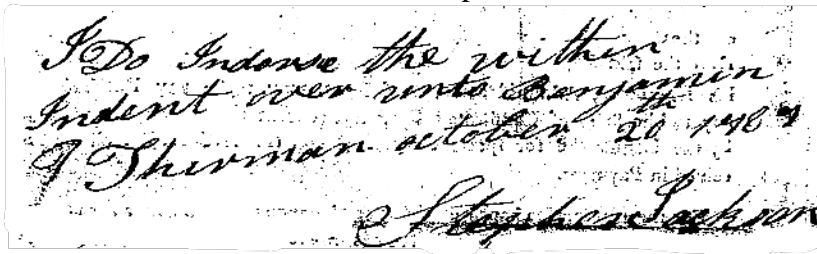 I Do Indorse the within
Indent over unto Benjamin
Thirman october 20th 1787
Stephen Jackson